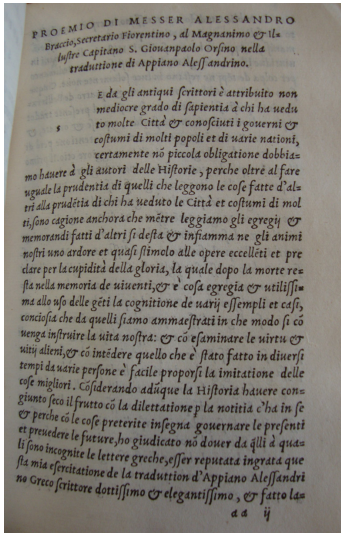 PROEMIO DI MESSER ALESSANDRO
Braccio, Secretario Fiorentino, al Magnanimo & Il=
lustre Capitano S. Giouanpaolo Orsino nella
traduttione di Appiano Alessandrino.
E da gli antiqui scrittori è attribuito non
mediocre grado di sapientia à chi ha uedu
s
to molte Città & conosciuti i gouerni &
costumi di molti popoli et di uarie nationi,
certamente nō piccola obligatione dobbia=
mo hauere à gli autori delle Historie, perche oltre al fare
uguale la prudentia di quelli che leggono le cose fatte d'al=
tri alla prudētia di chi ha ueduto le Città et costumi di mol
ti, sono cagione anchora che mētre leggiamo gli egregij &
memorandi fatti d'altri si desta & infiamma ne gli animi
nostri uno ardore et quasi stimolo alle opere eccellēti et pre
clare per la cupidità della gloria, la quale dopo la morte re=
sta nella memoria de uiuenti, & è cosa egregia & utilissi=
ma allo uso delle gēti la cognitione de uarij essempli et casi,
conciosia che da quelli siamo ammaestrati in che modo si cō
uenga instruire la uita nostra: & cō esaminare le uirtu &
uitij alieni, & cō intēdere quello che è stato fatto in diuersi
tempi da uarie persone è facile proporsi la imitatione delle
cose migliori. Cōsiderando adūque la Historia hauere con=
giunto seco il frutto cō la dilettatione p la notitia c'ha in se
& perche cō le cose preterite insegna gouernare le presenti
et preuedere le future, ho giudicato nō douer da q̃lli à qua=
li sono incognite le lettere greche, esser reputata ingrata que
sta mia esercitatione de la traduttion d'Appiano Alessandri
no Greco scrittore dottissimo & elegantissimo, & fatto la=
aa ij